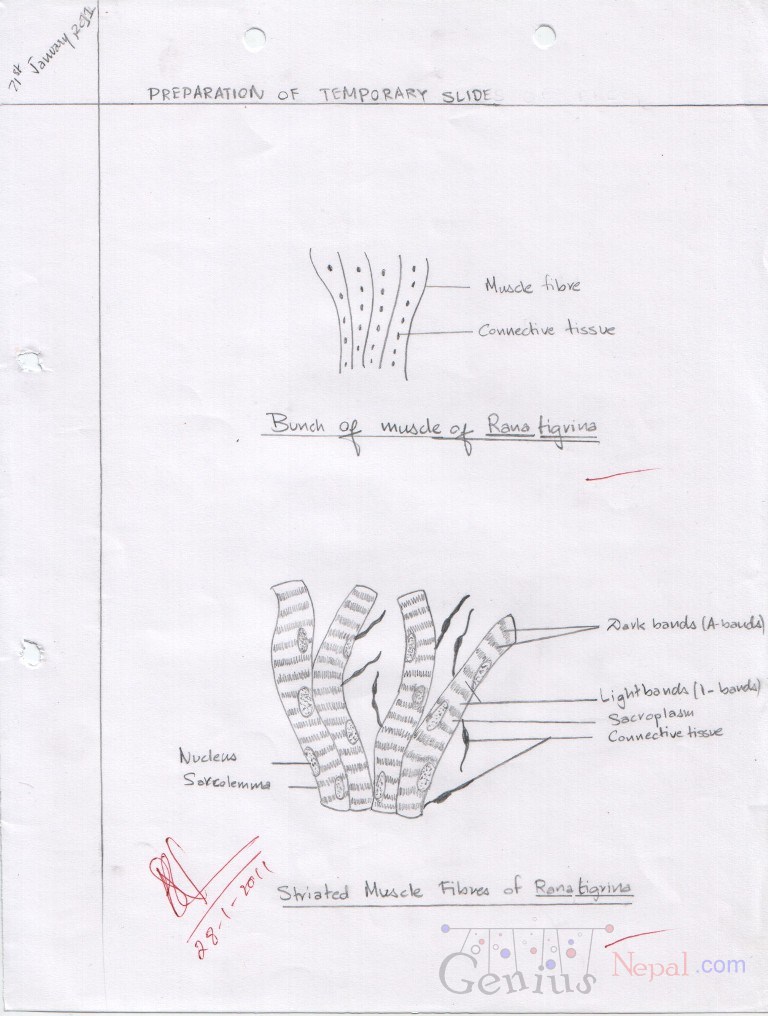 21st January 2011
PREPARATION OF TEMPORARY SLIDE
Muscle fibre
Connective tissue
Bunch of muscle of Rana tigrina
Dark bands (A-bands)
Light bands (I-bands)
Sacroplasm
Connective tissue
Nucleus
Sarcolemma
28-1-2011
Striated Muscle Fibres of Rana tigrina
Genius Nepal.com